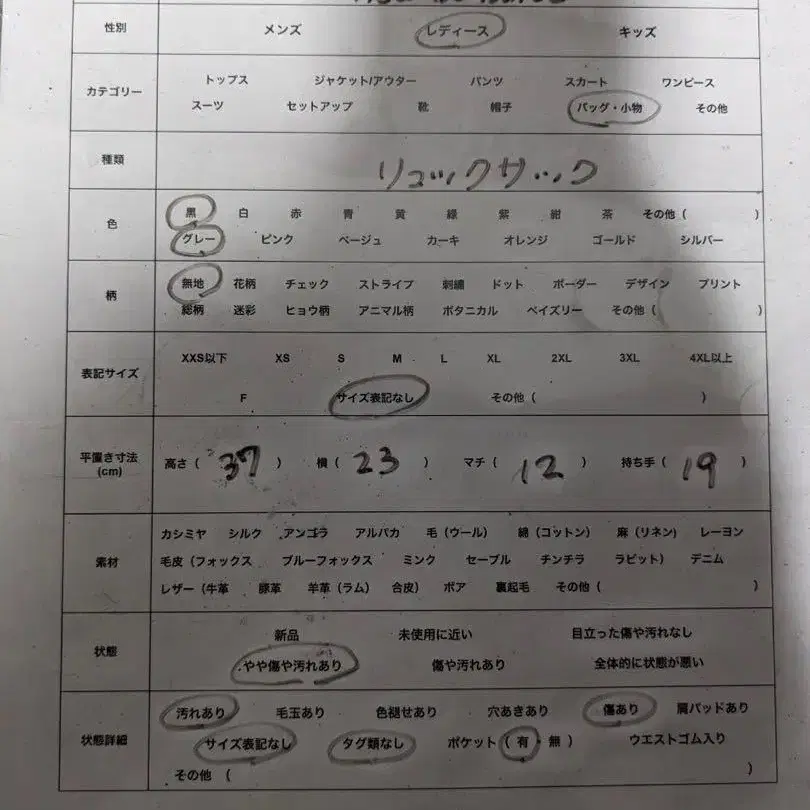 性別 メンズ レディース キッズ
カテゴリー トップス ジャケット/アウター パンツ スカート ワンピース
スーツ セットアップ 靴 帽子 バッグ・小物 その他
種類 リュックサック
色 黒 白 赤 青 黄 緑 紫 紺 茶 その他 ( )
グレー ピンク ベージュ カーキ オレンジ ゴールド シルバー
柄 無地 花柄 チェック ストライプ 刺繍 ドット ボーダー デザイン プリント
総柄 迷彩 ヒョウ柄 アニマル柄 ボタニカル ペイズリー その他 ( )
表記サイズ XXS以下 XS S M L XL 2XL 3XL 4XL以上
F サイズ表記なし その他 ( )
平置き寸法 (cm) 高さ ( 37 ) 横 ( 23 ) マチ ( 12 ) 持ち手 ( 19 )
素材 カシミヤ シルク アンゴラ アルパカ 毛 (ウール) 綿 (コットン) 麻 (リネン) レーヨン
毛皮 (フォックス ブルーフォックス ミンク セーブル チンチラ ラビット) デニム
レザー (牛革 豚革 羊革 (ラム) 合皮) ボア 裏起毛 その他 ( )
状態 新品 未使用に近い 目立った傷や汚れなし
やや傷や汚れあり 傷や汚れあり 全体的に状態が悪い
状態詳細 汚れあり 毛玉あり 色褪せあり 穴あきあり 傷あり 肩パッドあり
サイズ表記なし タグ類なし ポケット ( 有・無 ) ウエストゴム入り
その他 ( )